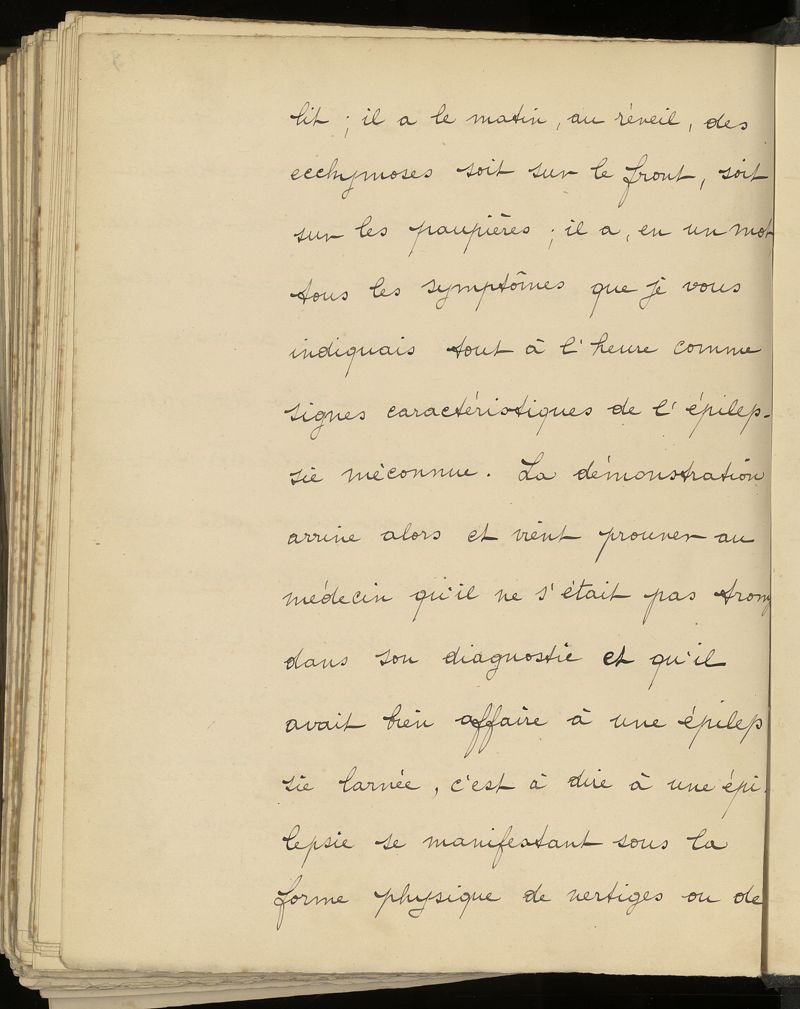 lit ; il a le matin, au réveil, des
ecchymoses soit sur le front, soit
sur les paupières ; il a, en un mot,
tous les symptômes que je vous
indiquais tout à l'heure comme
signes caractéristiques de l'épilep-
sie méconnue. La démonstration
arrive alors et vient prouver au
médecin qu'il ne s'était pas tromp
dans son diagnostic et qu'il
avait bien affaire à une épilep
sie larvée, c'est à dire à une épi-
lepsie se manifestant sous la
forme physique de vertiges ou de